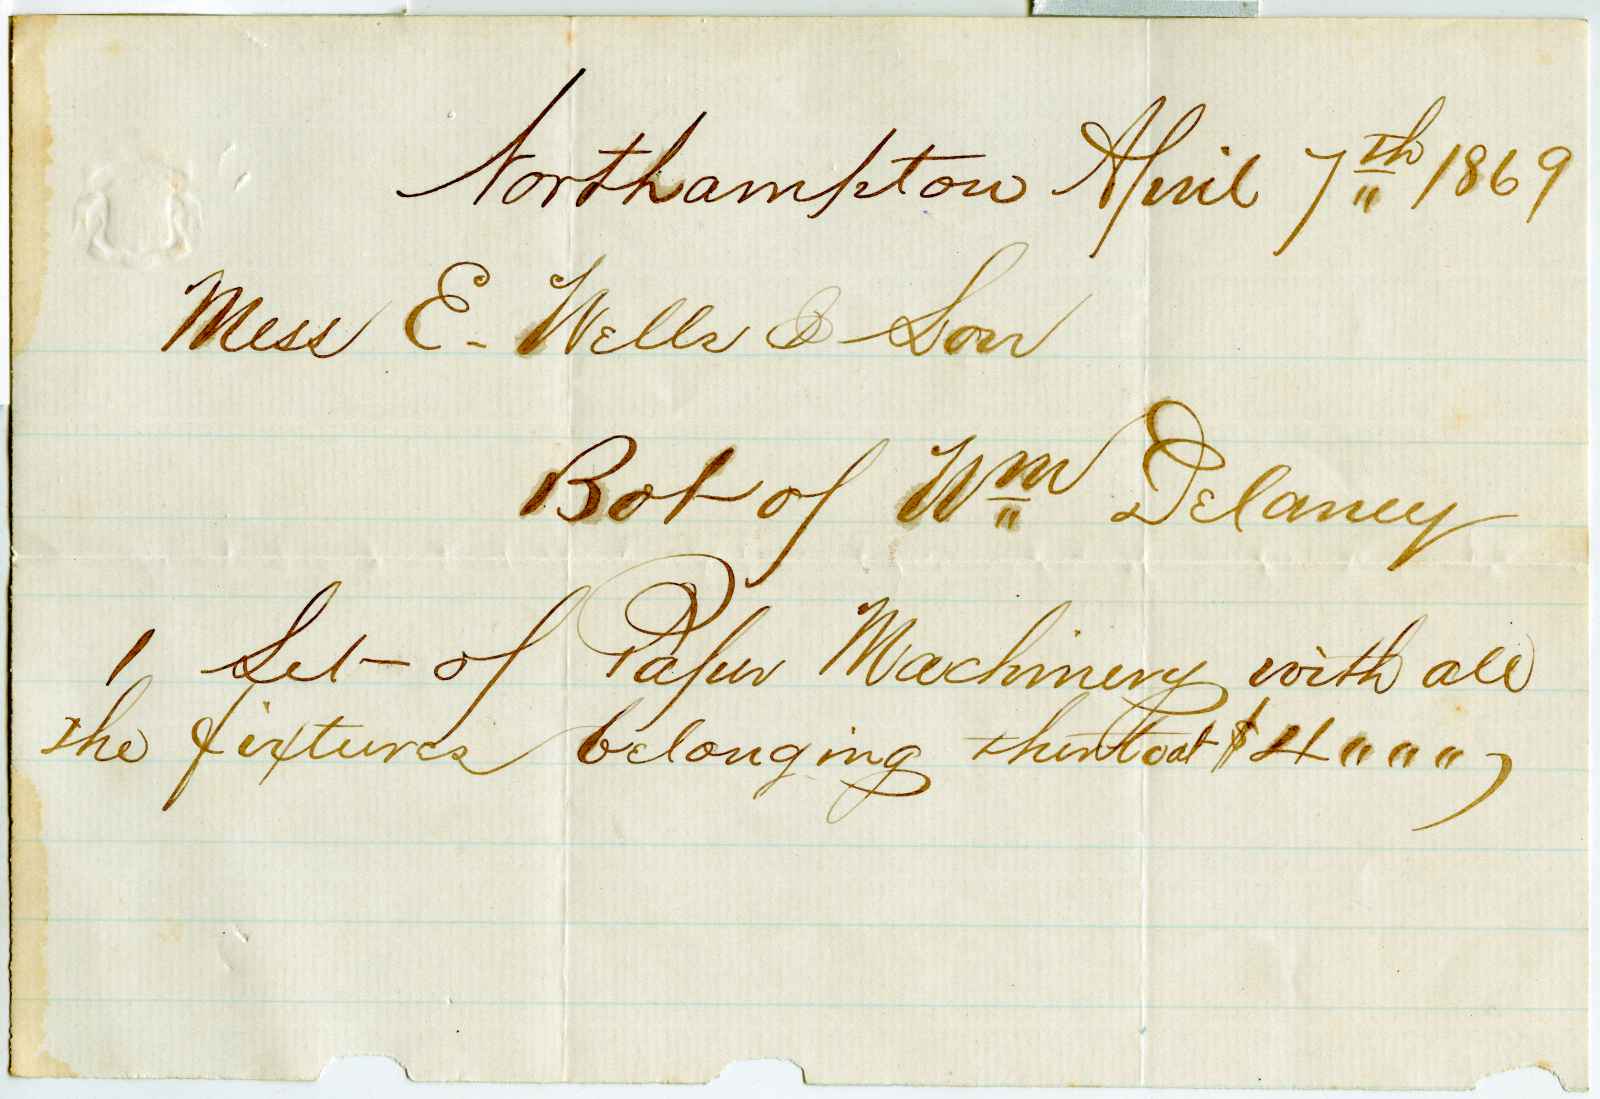 Northampton April 7th 1869
Mess E. Wells & Son
Bot of Wm Delaney
1 Set of Paper Machinery with all
the fixtures belonging thereto at $4 " " "